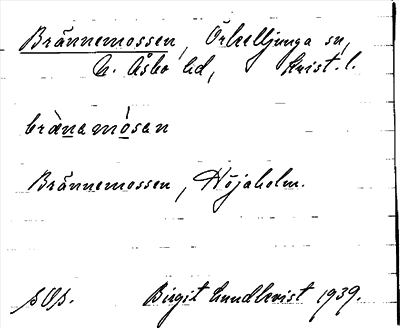 Brännemossen, Örkelljunga sn,
N. Åsbo hd, Krist. l.
brànamósan
Brännemossen, Höjaholm.
Birgit Lundkvist 1939.